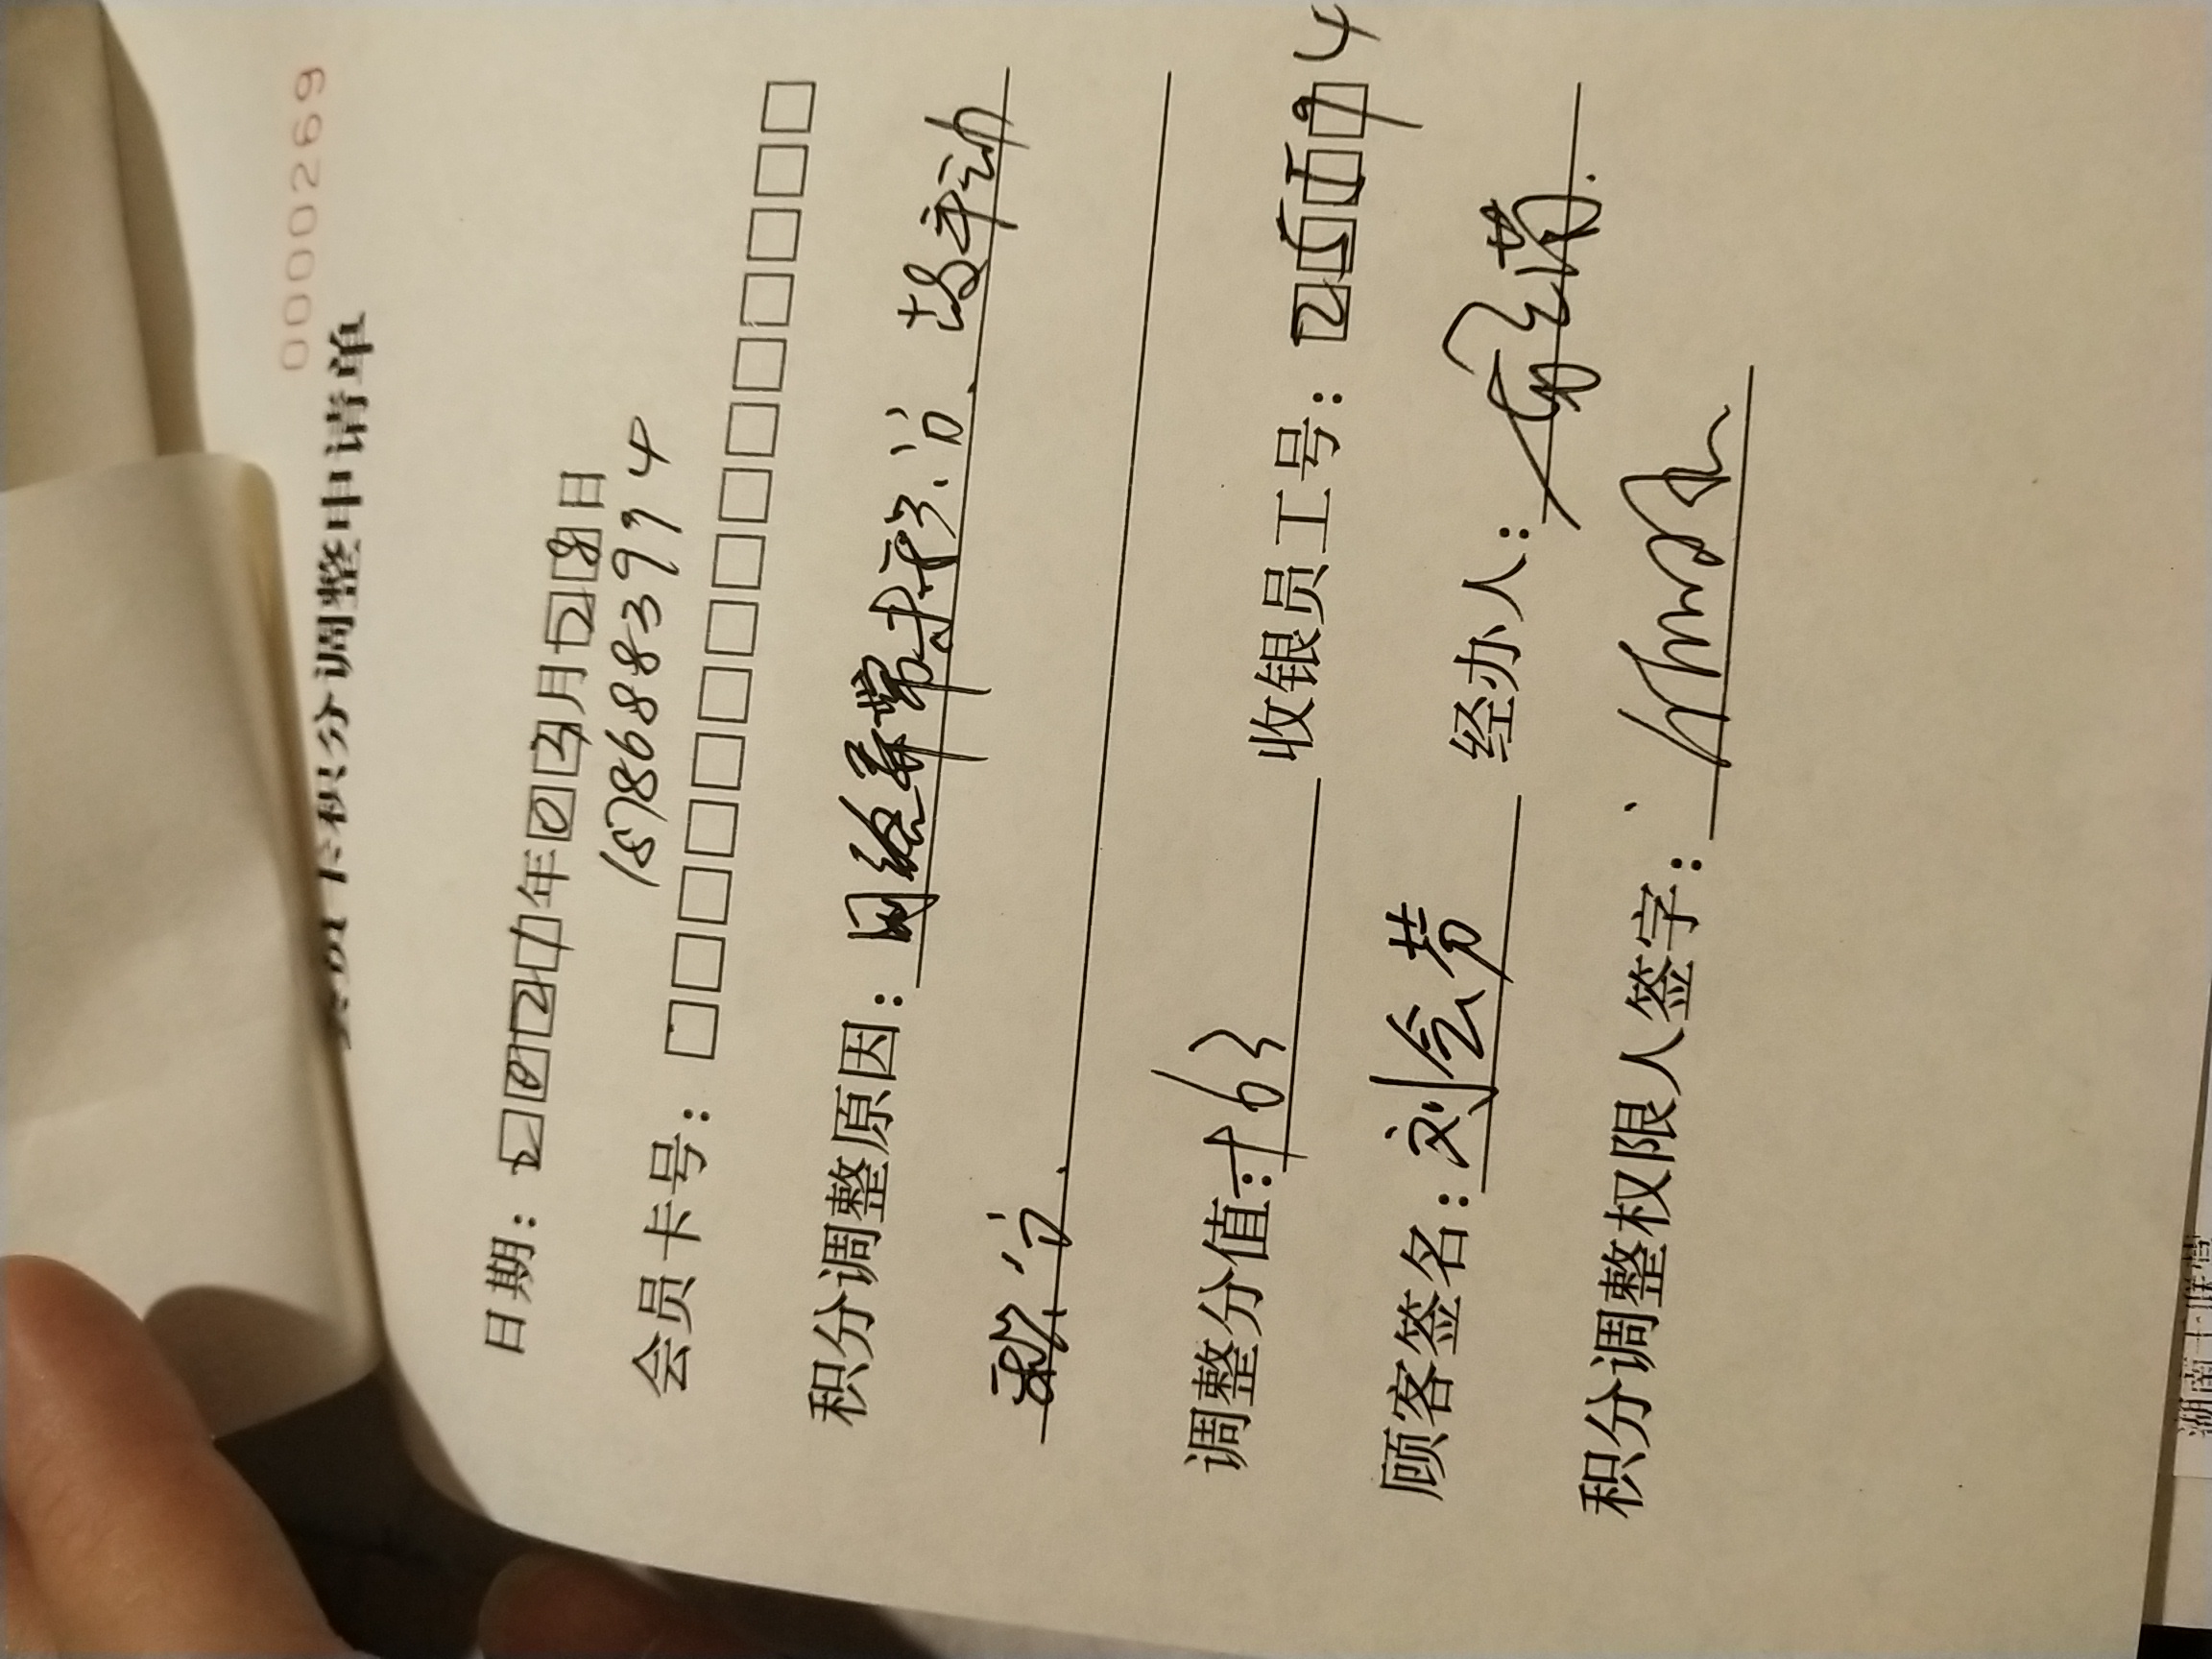 0000269
会员卡积分调整申请单
日期：2021年03月28日
15786883994
会员卡号：□□□□□□□□□□□□□□□
积分调整原因：网络异常未积分，故手动
积分.
调整分值：+163 收银员工号：25594
顾客签名：刘会芳 经办人：
积分调整权限人签字：